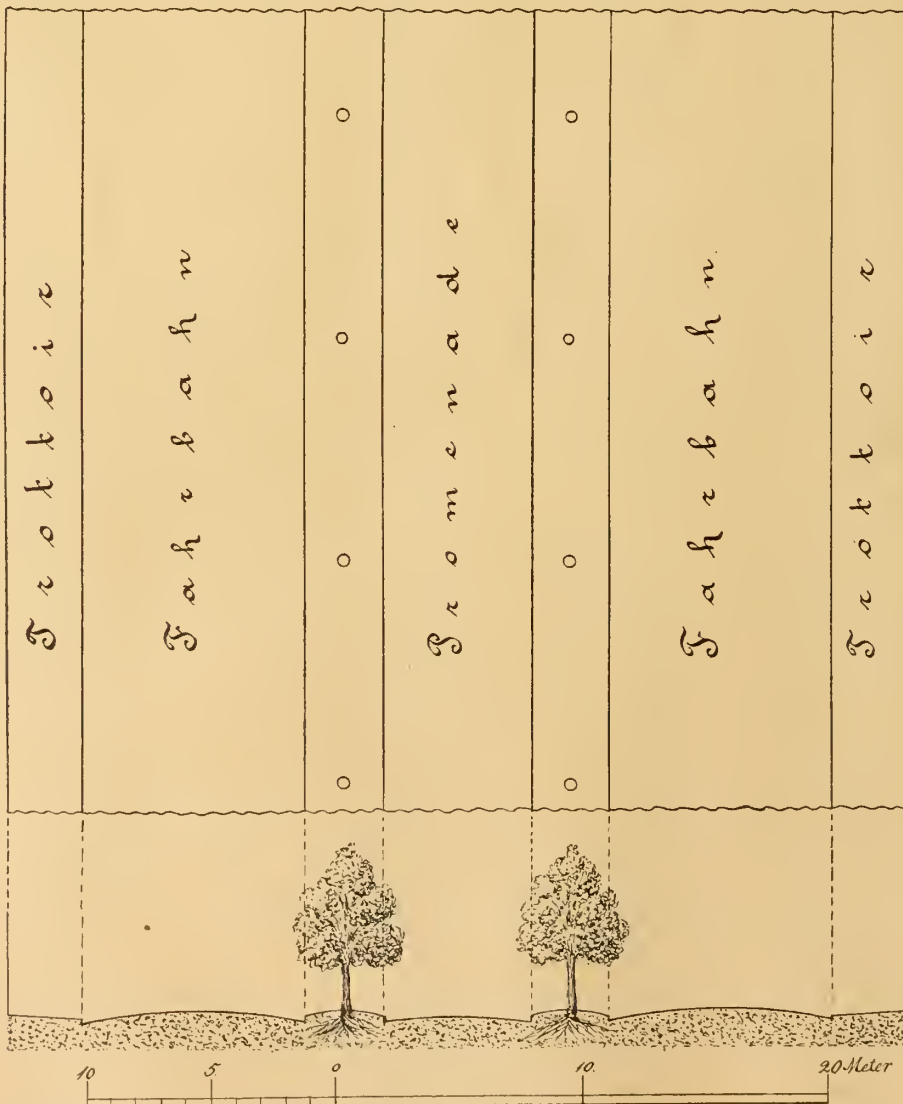 Trottoir
Fahrbahn
Promenade
Fahrbahn
Trottoir
10 5 0 10 20 Meter